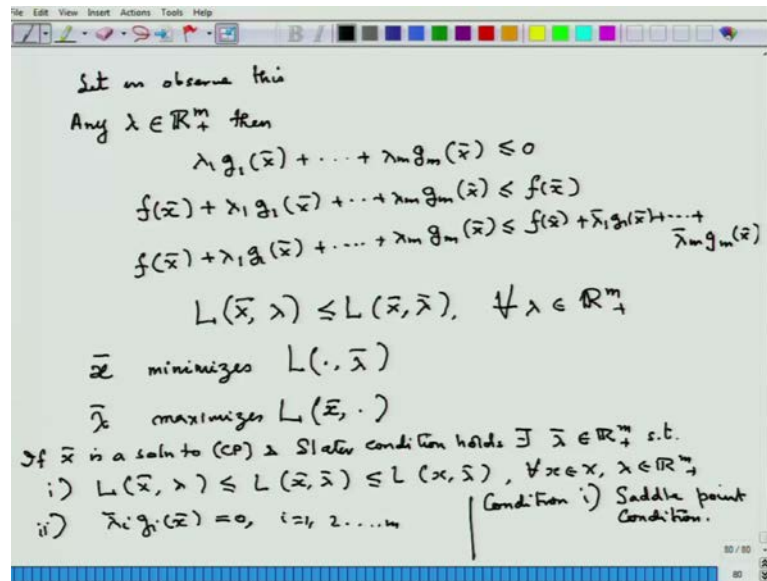 File Edit View Insert Actions Tools Help
B I
Let us observe this
Any λ ∈ ℝᵐ₊ then
λ₁ g₁(x̄) + ⋯ + λₘ gₘ(x̄) ≤ 0
f(x̄) + λ₁ g₁(x̄) + ⋯ + λₘ gₘ(x̄) ≤ f(x̄)
f(x̄) + λ₁ g₁(x̄) + ⋯ + λₘ gₘ(x̄) ≤ f(x̄) + λ̄₁ g₁(x̄) + ⋯ +
λ̄ₘ gₘ(x̄)
L(x̄, λ) ≤ L(x̄, λ̄), ∀ λ ∈ ℝᵐ₊
x̄ minimizes L(·, λ̄)
λ̄ maximizes L(x̄, ·)
If x̄ is a soln to (CP) & Slater condition holds ∃ λ̄ ∈ ℝᵐ₊ s.t.
i) L(x̄, λ) ≤ L(x̄, λ̄) ≤ L(x, λ̄), ∀ x ∈ X, λ ∈ ℝᵐ₊
ii) λ̄ᵢ gᵢ(x̄) = 0, i = 1, 2 .... m
Condition i) Saddle point
Condition.
80 / 80
80